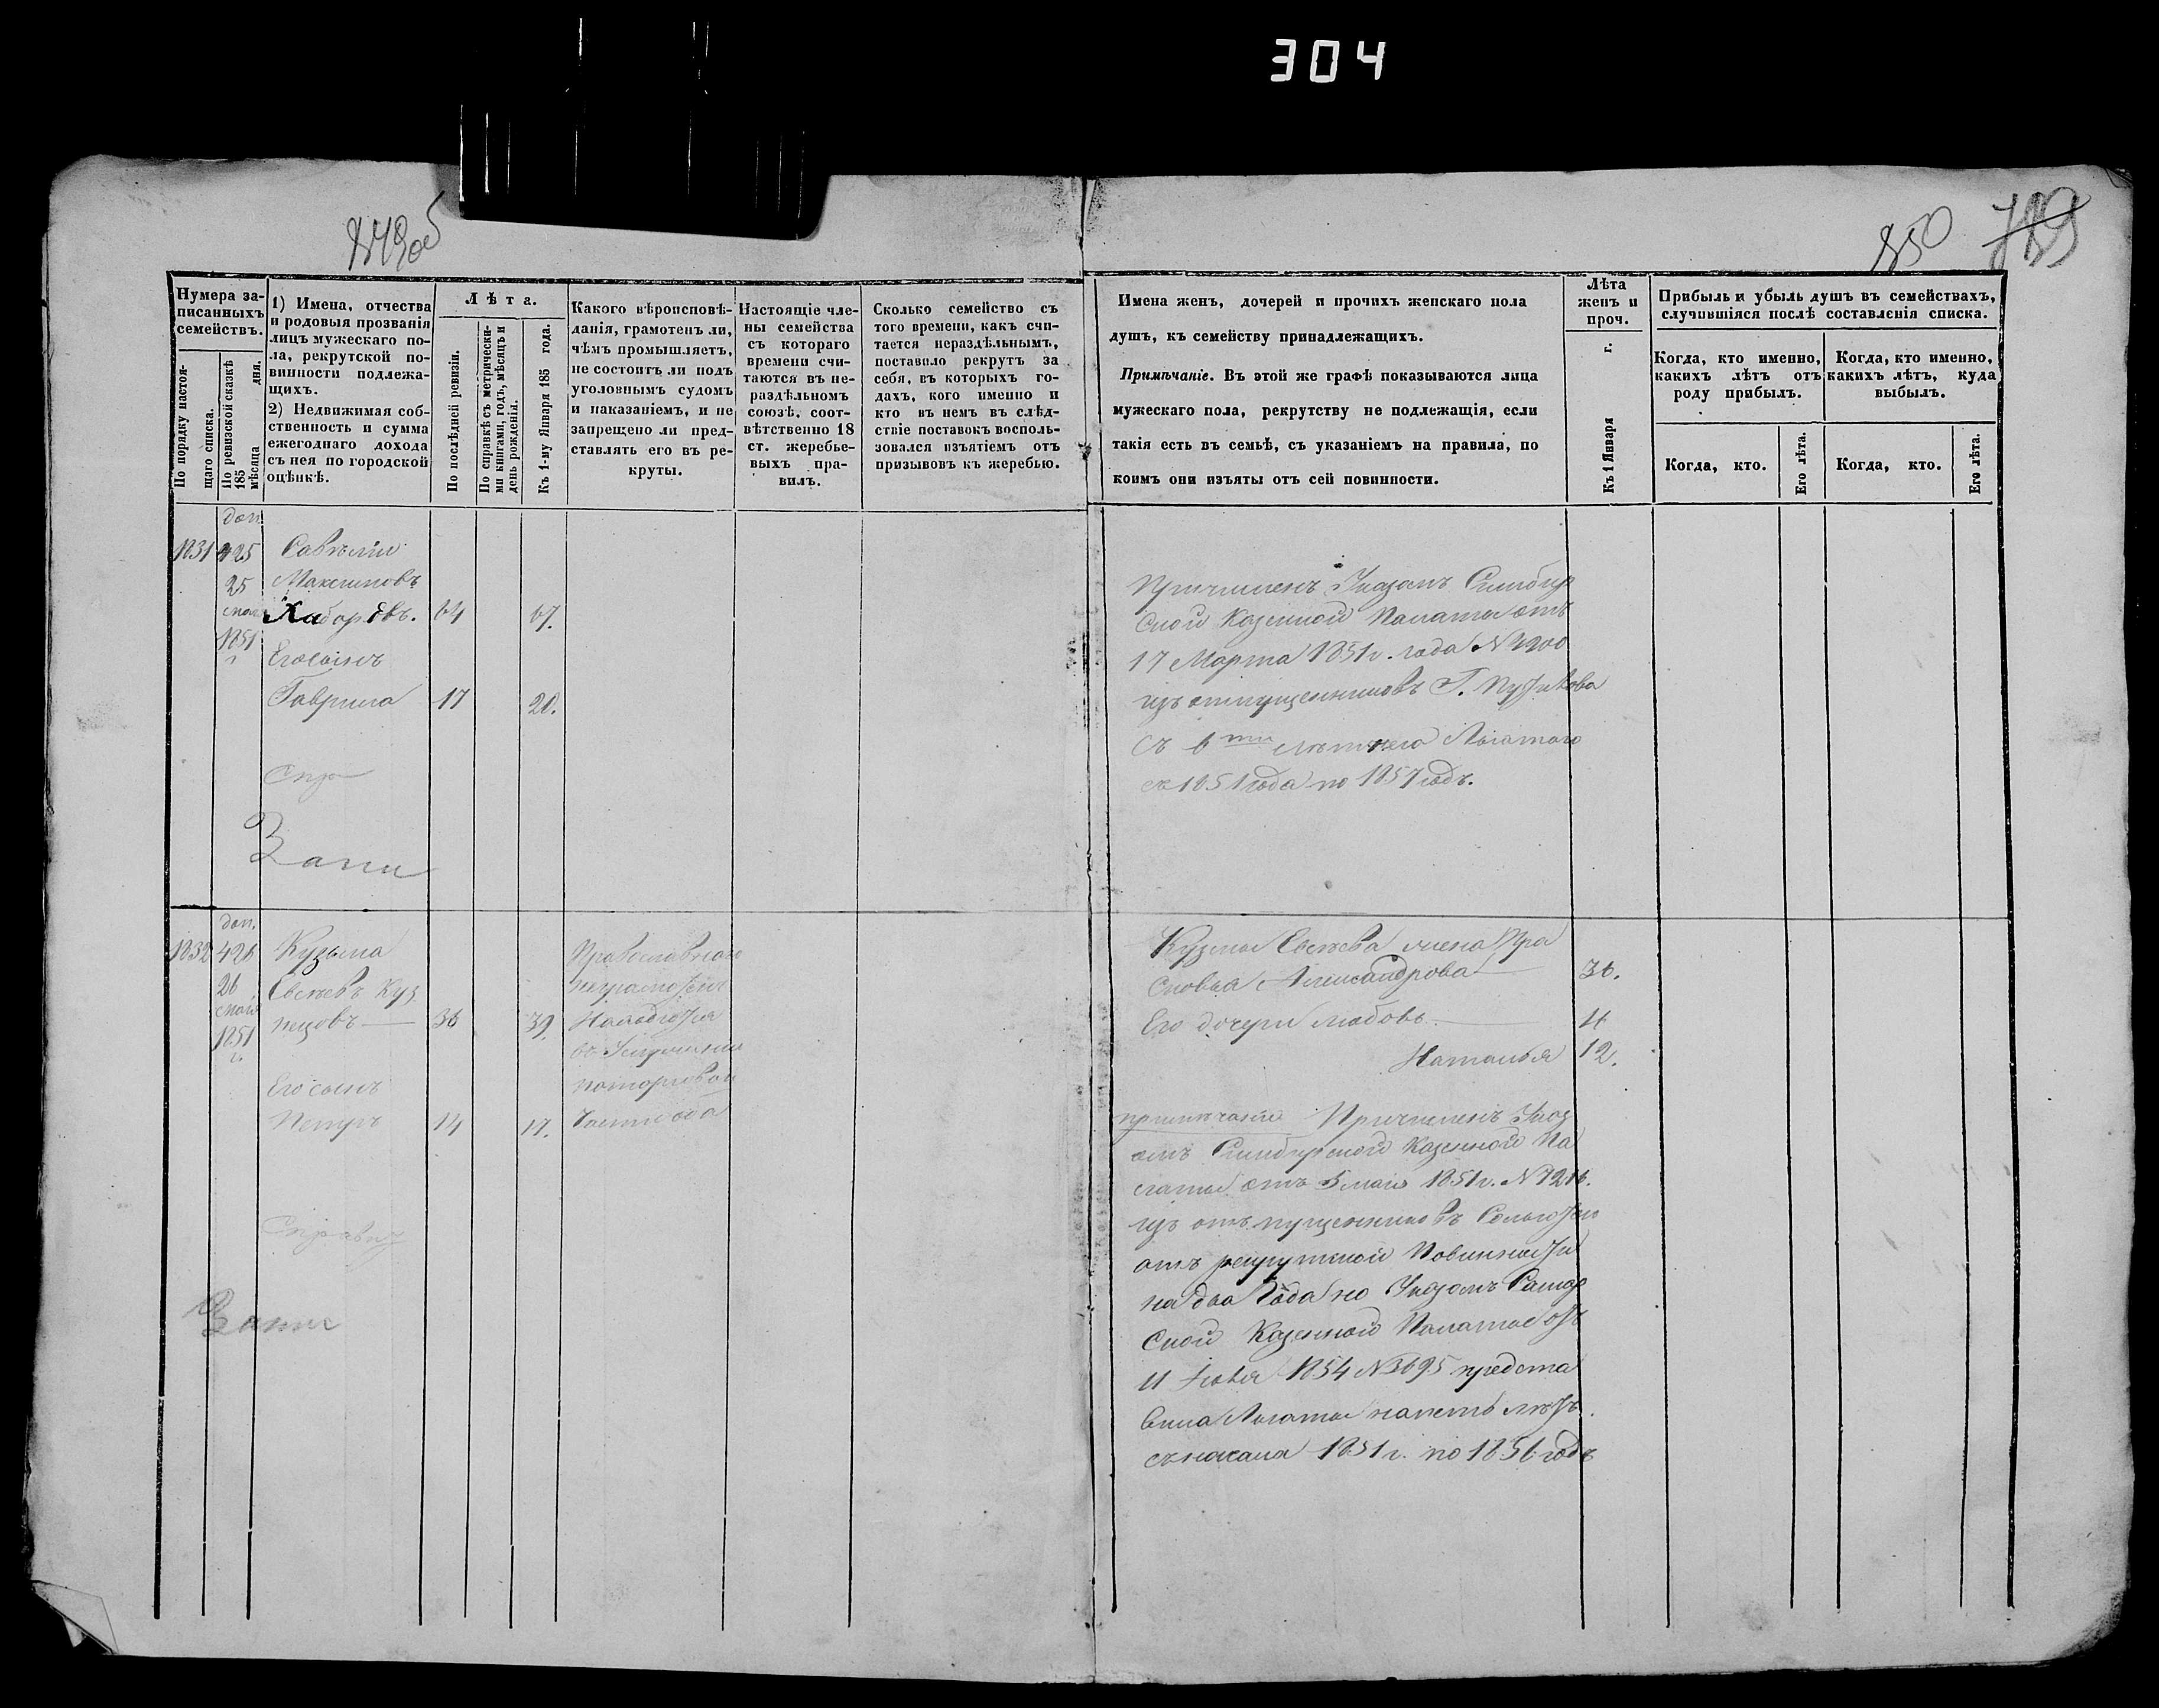 304
849об
850 789
Нумера записанныхъ семействъ.
По порядку настоящаго списка.
По ревизской сказкѣ 185 мѣсяца дня.
1) Имена, отчества и родовыя прозванія лицъ мужескаго пола, рекрутской повинности подлежащихъ.
2) Недвижимая собственность и сумма ежегоднаго дохода съ нея по городской оцѣнкѣ.
Лѣта.
По послѣдней ревизіи.
По справкѣ съ метрическими книгами, годъ, мѣсяцъ и день рожденія.
Къ 1-му Января 185 года.
Какого вѣроисповѣданія, грамотенъ ли, чѣмъ промышляетъ, не состоитъ ли подъ уголовнымъ судомъ и наказаніемъ, и не запрещено ли представлять его въ рекруты.
Настоящіе члены семейства съ котораго времени считаются въ нераздѣльномъ союзѣ, соотвѣтственно 18 ст. жеребьевыхъ правилъ.
Сколько семейство съ того времени, какъ считается нераздѣльнымъ, поставило рекрутъ за себя, въ которыхъ годахъ, кого именно и кто въ немъ въ слѣдствіе поставокъ воспользовался изъятіемъ отъ призывовъ къ жеребью.
Имена женъ, дочерей и прочихъ женскаго пола
душъ, къ семейству принадлежащихъ.
Примѣчаніе. Въ этой же графѣ показываются лица
мужескаго пола, рекрутству не подлежащія, если
такія есть въ семьѣ, съ указаніемъ на правила, по
коимъ они изъяты отъ сей повинности.
Лѣта женъ и проч.
Къ 1 Января г.
Прибыль и убыль душъ въ семействахъ,
случившіяся послѣ составленія списка.
Когда, кто именно, какихъ лѣтъ отъ роду прибылъ.
Когда, кто именно, какихъ лѣтъ, куда выбылъ.
Когда, кто.
Его лѣта.
Когда, кто.
Его лѣта.
доп.
1831 425 Савѣлій
25 Максимовъ
мая Хаборовъ. 64 67.
1851
Его сынъ
Гаврила 17 20.
Причисленъ Указомъ Симбир
ской Казенной Палаты отъ
17 Марта 1851 г. года N 4200
изъ отпущенниковъ Г. Пузикова
съ 6ти лѣтнею Льготою
съ 1851 года по 1857 годъ.
доп.
1832 426 Кузьма
26 Евсѣевъ Куз
мая нецовъ 36 39.
1851
г.
Его сынъ
Петръ 14 17.
Православнаго
неграмотенъ
Находится
въ
по торговой
части
Кузьмы Евсѣева жена Пра
сковья Александрова 36.
Его дочери Любовь 4
Наталья 12.
примѣчаніе Причисленъ Указ
омъ Симбирской Казенной Па
латы отъ 5 мая 1851 г. N 7216.
изъ отпущенниковъ Сольготою
отъ рекрутской Повинности
на два Года но Указомъ Самар
ской Казенной Палаты отъ
11 1854 N 3695 предста
влена Льгота на шесть лѣтъ
съ начала 1851 г. по 1856 годъ